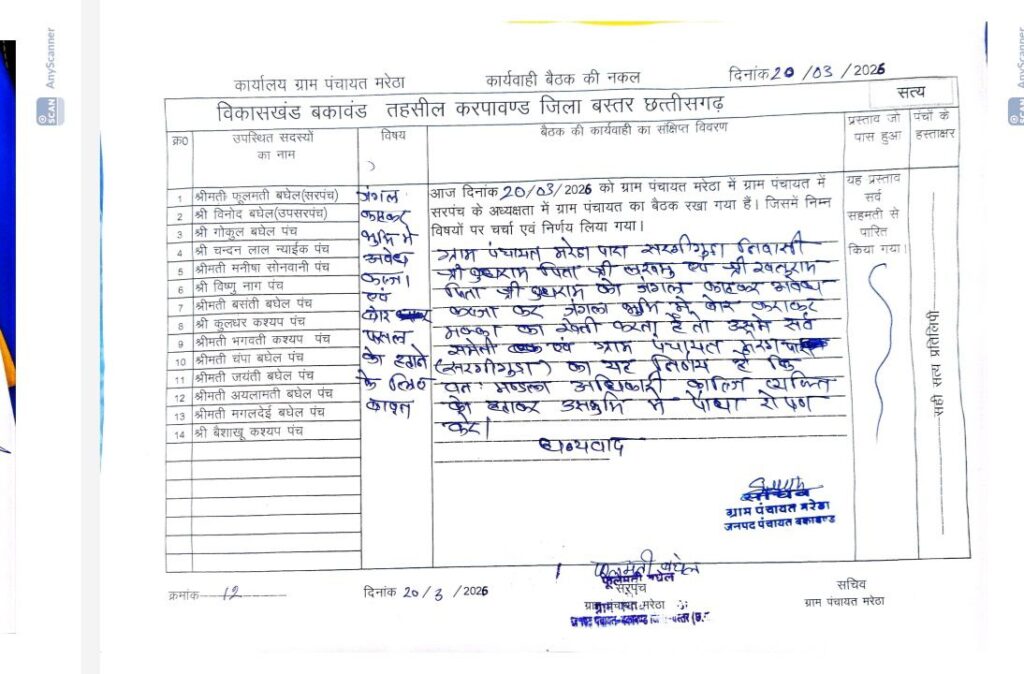 SCAN AnyScanner
SCAN AnyScanner
कार्यालय ग्राम पंचायत मरेठा कार्यवाही बैठक की नकल दिनांक 20 /03 / 2026
विकासखंड बकावंड तहसील करपावण्ड जिला बस्तर छत्तीसगढ़ सत्य
क्र0 उपस्थित सदस्यों का नाम विषय बैठक की कार्यवाही का संक्षिप्त विवरण प्रस्ताव जो पास हुआ पंचों के हस्ताक्षर
1 श्रीमती फूलमती बघेल(सरपंच)
2 श्री विनोद बघेल(उपसरपंच)
3 श्री गोकुल बघेल पंच
4 श्री चन्दन लाल न्याईक पंच
5 श्रीमती मनीषा सोनवानी पंच
6 श्री विष्णु नाग पंच
7 श्रीमती बसंती बघेल पंच
8 श्री कुलधर कश्यप पंच
9 श्रीमती भगवती कश्यप पंच
10 श्रीमती चंपा बघेल पंच
11 श्रीमती जयंती बघेल पंच
12 श्रीमती अयलामती बघेल पंच
13 श्रीमती मगलदेई बघेल पंच
14 श्री बैशाखू कश्यप पंच
जंगल
काटकर
भुमि मे
अवेध
कब्जा
एवं
फसल
को हटाने
के लिए
आज दिनांक 20/03/2026 को ग्राम पंचायत मरेठा में ग्राम पंचायत में
सरपंच के अध्यक्षता में ग्राम पंचायत का बैठक रखा गया है। जिसमें निम्न
विषयों पर चर्चा एवं निर्णय लिया गया।
ग्राम पंचायत मरेठा पारा सरगीगुडा निवासी
श्री बुधराम पिता श्री लखमु एवं श्री रवतुराम
पिता श्री बुधराम को जंगल काटकर अवेध
कब्जा कर जंगल भुमि मे बोर कराकर
मक्का का खेती करता है तो उसमे सर्व
समिती एवं ग्राम पंचायत
(सरगीगुडा) का यह निर्णय है कि
वन मण्डला अधिकारी काबिज व्यक्ति
को हटाकर उसभुमि मे पौधा रोपण
करे।
धन्यवाद
यह प्रस्ताव
सर्व
सहमती से
पारित
किया गया।
सही सत्य प्रतिलिपी
सचिव
ग्राम पंचायत मरेठा
जनपद पंचायत बकावण्ड
फुलमती बघेल
फूलमती बघेल
सरपंच
ग्राम पंचायत मरेठा
क्रमांक 12 दिनांक 20 / 3 / 2026
सचिव
ग्राम पंचायत मरेठा